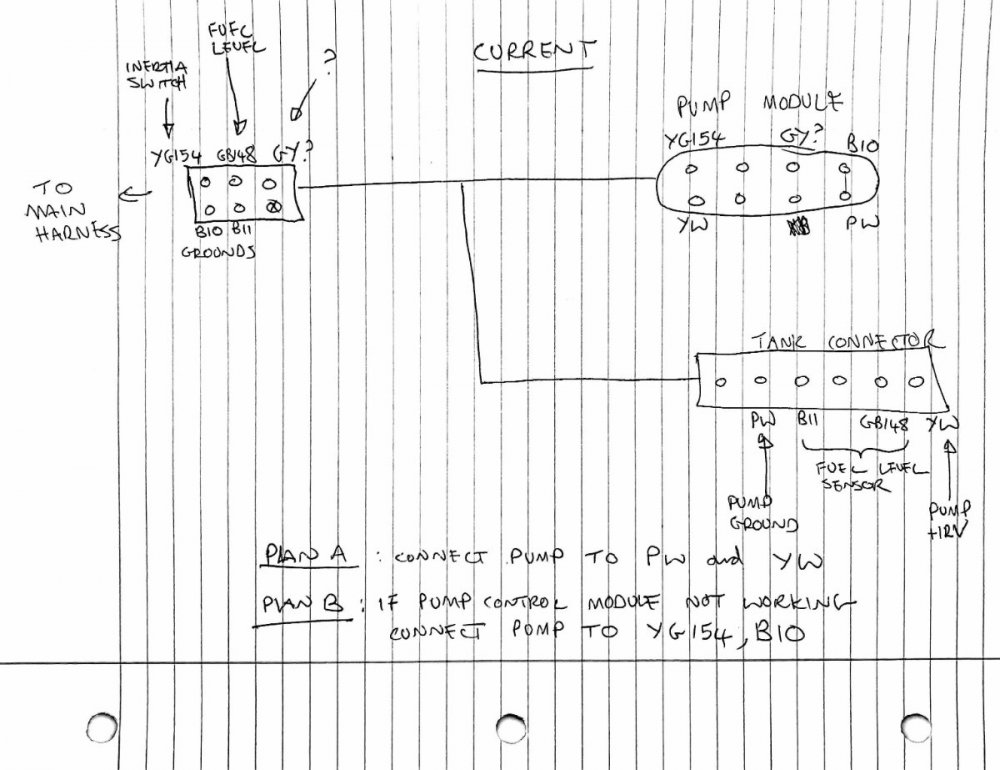 CURRENT
FUEL
LEVEL
?
INERTIA
SWITCH
YG154 GB148 GY?
TO
MAIN
HARNESS
B10 B11
GROUNDS
PUMP MODULE
YG154 GY? B10
YW PW
TANK CONNECTOR
PW B11 GB148 YW
FUEL LEVEL
SENSOR
PUMP
GROUND
PUMP
+12V
PLAN A : CONNECT PUMP TO PW and YW
PLAN B : IF PUMP CONTROL MODULE NOT WORKING
CONNECT PUMP TO YG154, B10